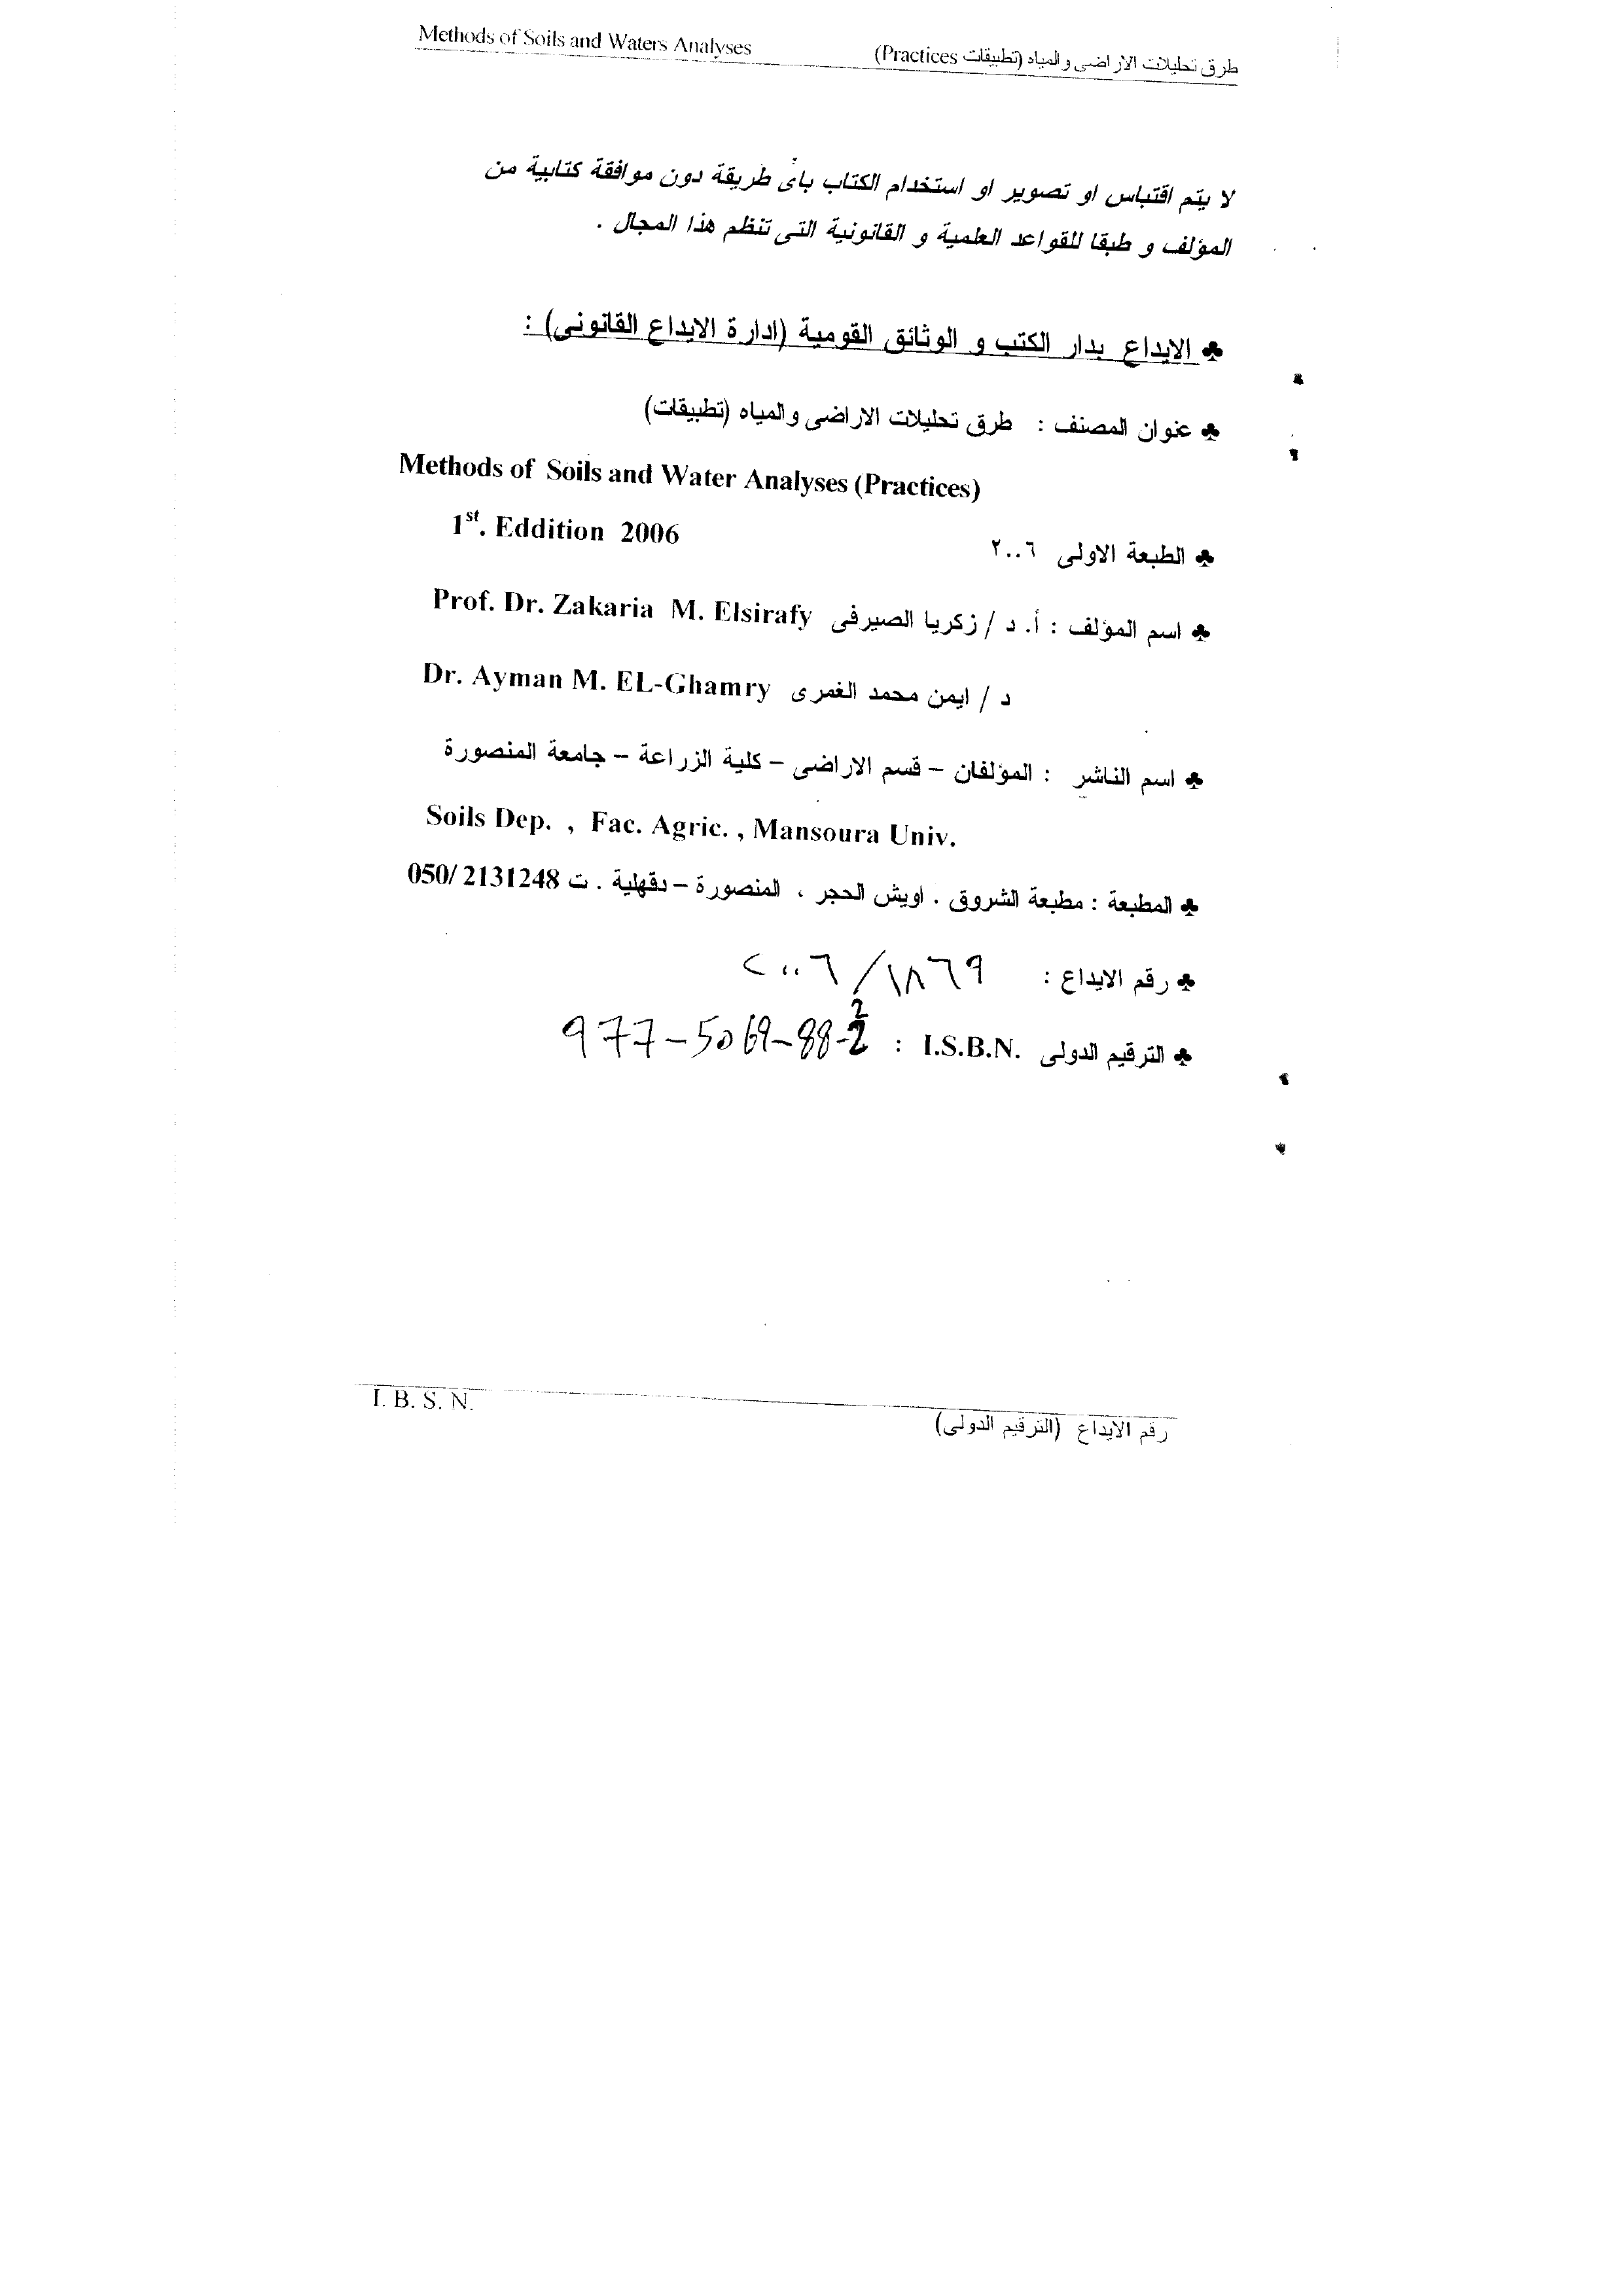 Methods of Soils and Waters Analyses طرق تحليلات الاراضى والمياه (تطبيقات Practices)
لا يتم اقتباس او تصوير او استخدام الكتاب بأى طريقة دون موافقة كتابية من
المؤلف و طبقا للقواعد العلمية و القانونية التى تنظم هذا المجال .
♣ الايداع بدار الكتب و الوثائق القومية (ادارة الايداع القانونى) :
♣ عنوان المصنف : طرق تحليلات الاراضى والمياه (تطبيقات)
Methods of Soils and Water Analyses (Practices)
♣ الطبعة الاولى ٢٠٠٦ 1st. Eddition 2006
♣ اسم المؤلف : أ. د / زكريا الصيرفى Prof. Dr. Zakaria M. Elsirafy
د / ايمن محمد الغمرى Dr. Ayman M. EL-Ghamry
♣ اسم الناشر : المؤلفان – قسم الاراضى – كلية الزراعة – جامعة المنصورة
Soils Dep. , Fac. Agric. , Mansoura Univ.
♣ المطبعة : مطبعة الشروق . اويش الحجر ، المنصورة – دقهلية . ت 050/ 2131248
♣ رقم الايداع : ١٨٦٩/٢٠٠٦
♣ الترقيم الدولى I.S.B.N. : 977-5069-88-2
I. B. S. N. رقم الايداع (الترقيم الدولى)